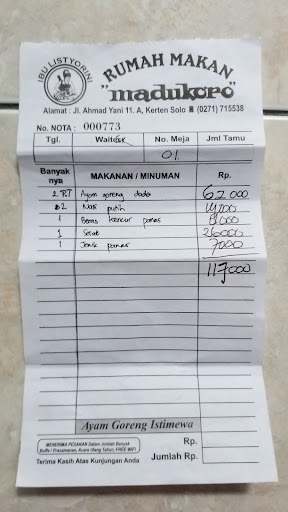 IBU LISTYORINI
RUMAH MAKAN
"madukoro"
Alamat : Jl. Ahmad Yani 11. A, Kerten Solo ☎ (0271) 715538
No. NOTA : 000773
Tgl. Waiter No. Meja Jml Tamu
01
Banyak nya MAKANAN / MINUMAN Rp.
2 PT Ayam goreng dada 62000
2 Nasi putih
1 Beras kencur panas
1 26000
1 Jeruk panas 7000
117000
Ayam Goreng Istimewa
MENERIMA PESANAN Dalam Jumlah Banyak Rp.
Buffe / Prasmanan, Acara Ulang Tahun, FREE WIFI
Terima Kasih Atas Kunjungan Anda Jumlah Rp.